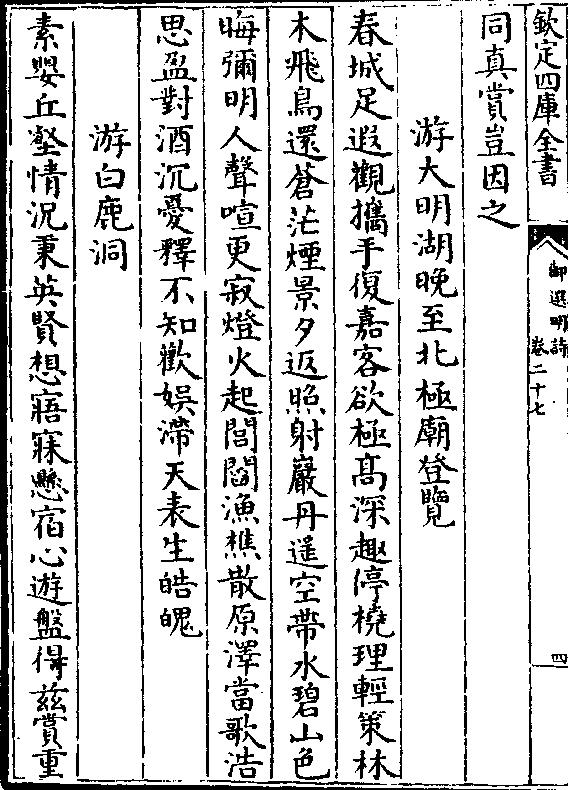 欽定四庫全書
御選明詩
卷二十七
四
同真賞豈因之
游大明湖晚至北極廟登覽
春城足遐觀攜手復嘉客欲極高深趣停橈理輕策林
木飛鳥還蒼茫煙景夕返照射巖丹遥空帶水碧山色
晦彌明人聲喧更寂燈火起閭閻漁樵散原澤當歌浩
思盈對酒沉憂釋不知歡娯滯天表生皓魄
游白鹿洞
素嬰丘壑情況秉英賢想寤寐懸宿心遊盤得兹賞重